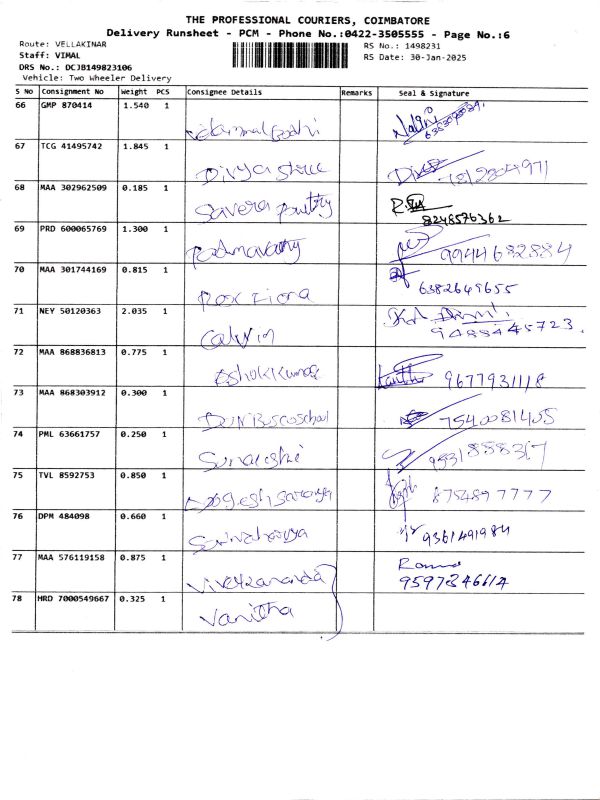 THE PROFESSIONAL COURIERS, COIMBATORE
Delivery Runsheet - PCM - Phone No.:0422-3505555 - Page No.:6
Route: VELLAKINAR RS No.: 1498231
Staff: VIMAL RS Date: 30-Jan-2025
DRS No.: DCJB149823106
Vehicle: Two Wheeler Delivery
S No Consignment No Weight PCS Consignee Details Remarks Seal & Signature
66 GMP 870414 1.540 1
67 TCG 41495742 1.845 1
Divya Shree 7812804971
68 MAA 302962509 0.185 1
Savera poultry 8248576362
69 PRD 600065769 1.300 1
Padmavathy 9944682884
70 MAA 301744169 0.815 1
6382649655
71 NEY 50120363 2.035 1
Calvin 9488445723
72 MAA 868836813 0.775 1
Ashok Kumar 9677931118
73 MAA 868303912 0.300 1
Don Bosco School 7540081405
74 PML 63661757 0.250 1
75 TVL 8592753 0.850 1
8754897777
76 DPM 484098 0.660 1
9361491984
77 MAA 576119158 0.875 1
Vivekananda 9597346614
78 HRD 7000549667 0.325 1
Vanitha